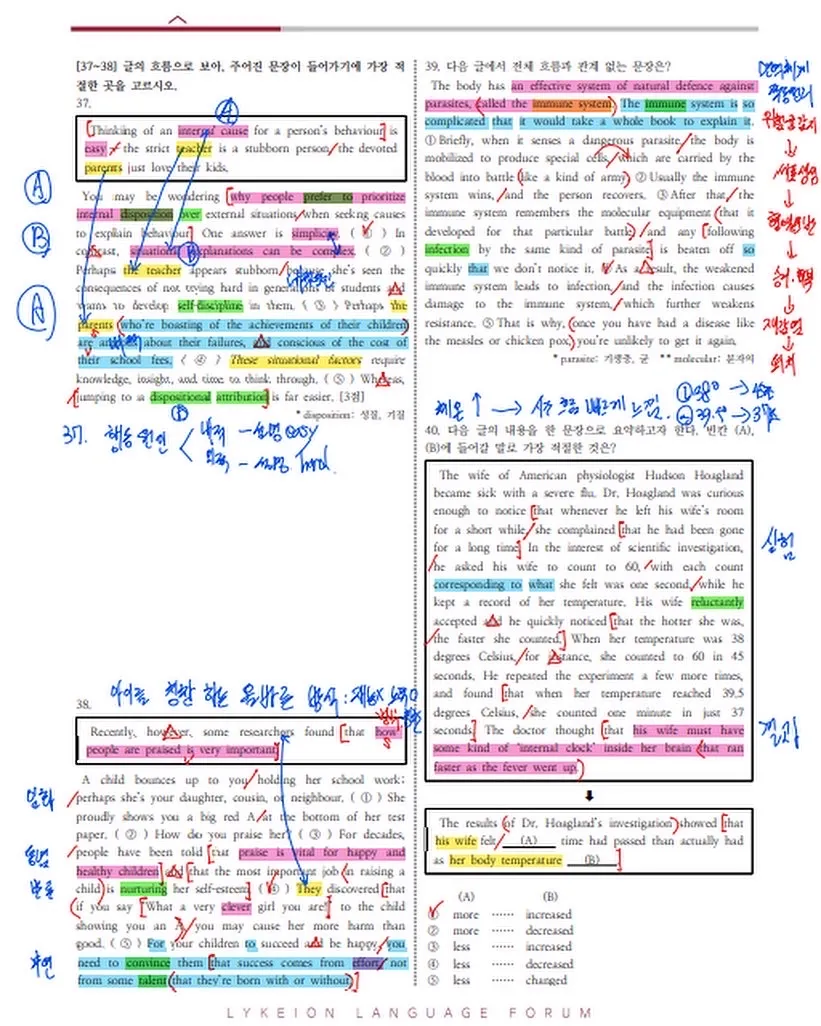 [37~38] 글의 흐름으로 보아, 주어진 문장이 들어가기에 가장 적
절한 곳을 고르시오.
37.
Thinking of an internal cause for a person's behaviour is
easy - the strict teacher is a stubborn person, the devoted
parents just love their kids.
You may be wondering why people prefer to prioritize
internal disposition over external situations when seeking causes
to explain behaviour. One answer is simplicity. ( ① ) In
contrast, situational explanations can be complex. ( ② )
Perhaps the teacher appears stubborn because she's seen the
consequences of not trying hard in generations of students and
wants to develop self-discipline in them. ( ③ ) Perhaps the
parents who're boasting of the achievements of their children
are anxious about their failures, and conscious of the cost of
their school fees. ( ④ ) These situational factors require
knowledge, insight, and time to think through. ( ⑤ ) Whereas,
jumping to a dispositional attribution is far easier. [3점]
* disposition: 성질, 기질
37. 행동 원인
내적 - 설명 easy
외적 - 설명 hard
38.
Recently, however, some researchers found that how
people are praised is very important.
A child bounces up to you holding her school work;
perhaps she's your daughter, cousin, or neighbour. ( ① ) She
proudly shows you a big red A at the bottom of her test
paper. ( ② ) How do you praise her? ( ③ ) For decades,
people have been told that praise is vital for happy and
healthy children and that the most important job in raising a
child is nurturing her self-esteem. ( ④ ) They discovered that
if you say "What a very clever girl you are!" to the child
showing you an A, you may cause her more harm than
good. ( ⑤ ) For your children to succeed and be happy, you
need to convince them that success comes from effort, not
from some talent that they're born with or without.
39. 다음 글에서 전체 흐름과 관계 없는 문장은?
The body has an effective system of natural defence against
parasites, called the immune system. The immune system is so
complicated that it would take a whole book to explain it.
① Briefly, when it senses a dangerous parasite, the body is
mobilized to produce special cells, which are carried by the
blood into battle like a kind of army. ② Usually the immune
system wins, and the person recovers. ③ After that, the
immune system remembers the molecular equipment that it
developed for that particular battle, and any following
infection by the same kind of parasite is beaten off so
quickly that we don't notice it. ④ As a result, the weakened
immune system leads to infection, and the infection causes
damage to the immune system, which further weakens
resistance. ⑤ That is why, once you have had a disease like
the measles or chicken pox, you're unlikely to get it again.
* parasite: 기생충, 균 ** molecular: 분자의
40. 다음 글의 내용을 한 문장으로 요약하고자 한다. 빈칸 (A),
(B)에 들어갈 말로 가장 적절한 것은?
The wife of American physiologist Hudson Hoagland
became sick with a severe flu. Dr. Hoagland was curious
enough to notice that whenever he left his wife's room
for a short while, she complained that he had been gone
for a long time. In the interest of scientific investigation,
he asked his wife to count to 60, with each count
corresponding to what she felt was one second, while he
kept a record of her temperature. His wife reluctantly
accepted and he quickly noticed that the hotter she was,
the faster she counted. When her temperature was 38
degrees Celsius, for instance, she counted to 60 in 45
seconds. He repeated the experiment a few more times,
and found that when her temperature reached 39.5
degrees Celsius, she counted one minute in just 37
seconds. The doctor thought that his wife must have
some kind of 'internal clock' inside her brain that ran
faster as the fever went up.
실험
결과
The results of Dr. Hoagland's investigation showed that
his wife felt (A) time had passed than actually had
as her body temperature (B) .
(A) (B)
① more ······ increased
② more ······ decreased
③ less ······ increased
④ less ······ decreased
⑤ less ······ changed
LYKEION LANGUAGE FORUM